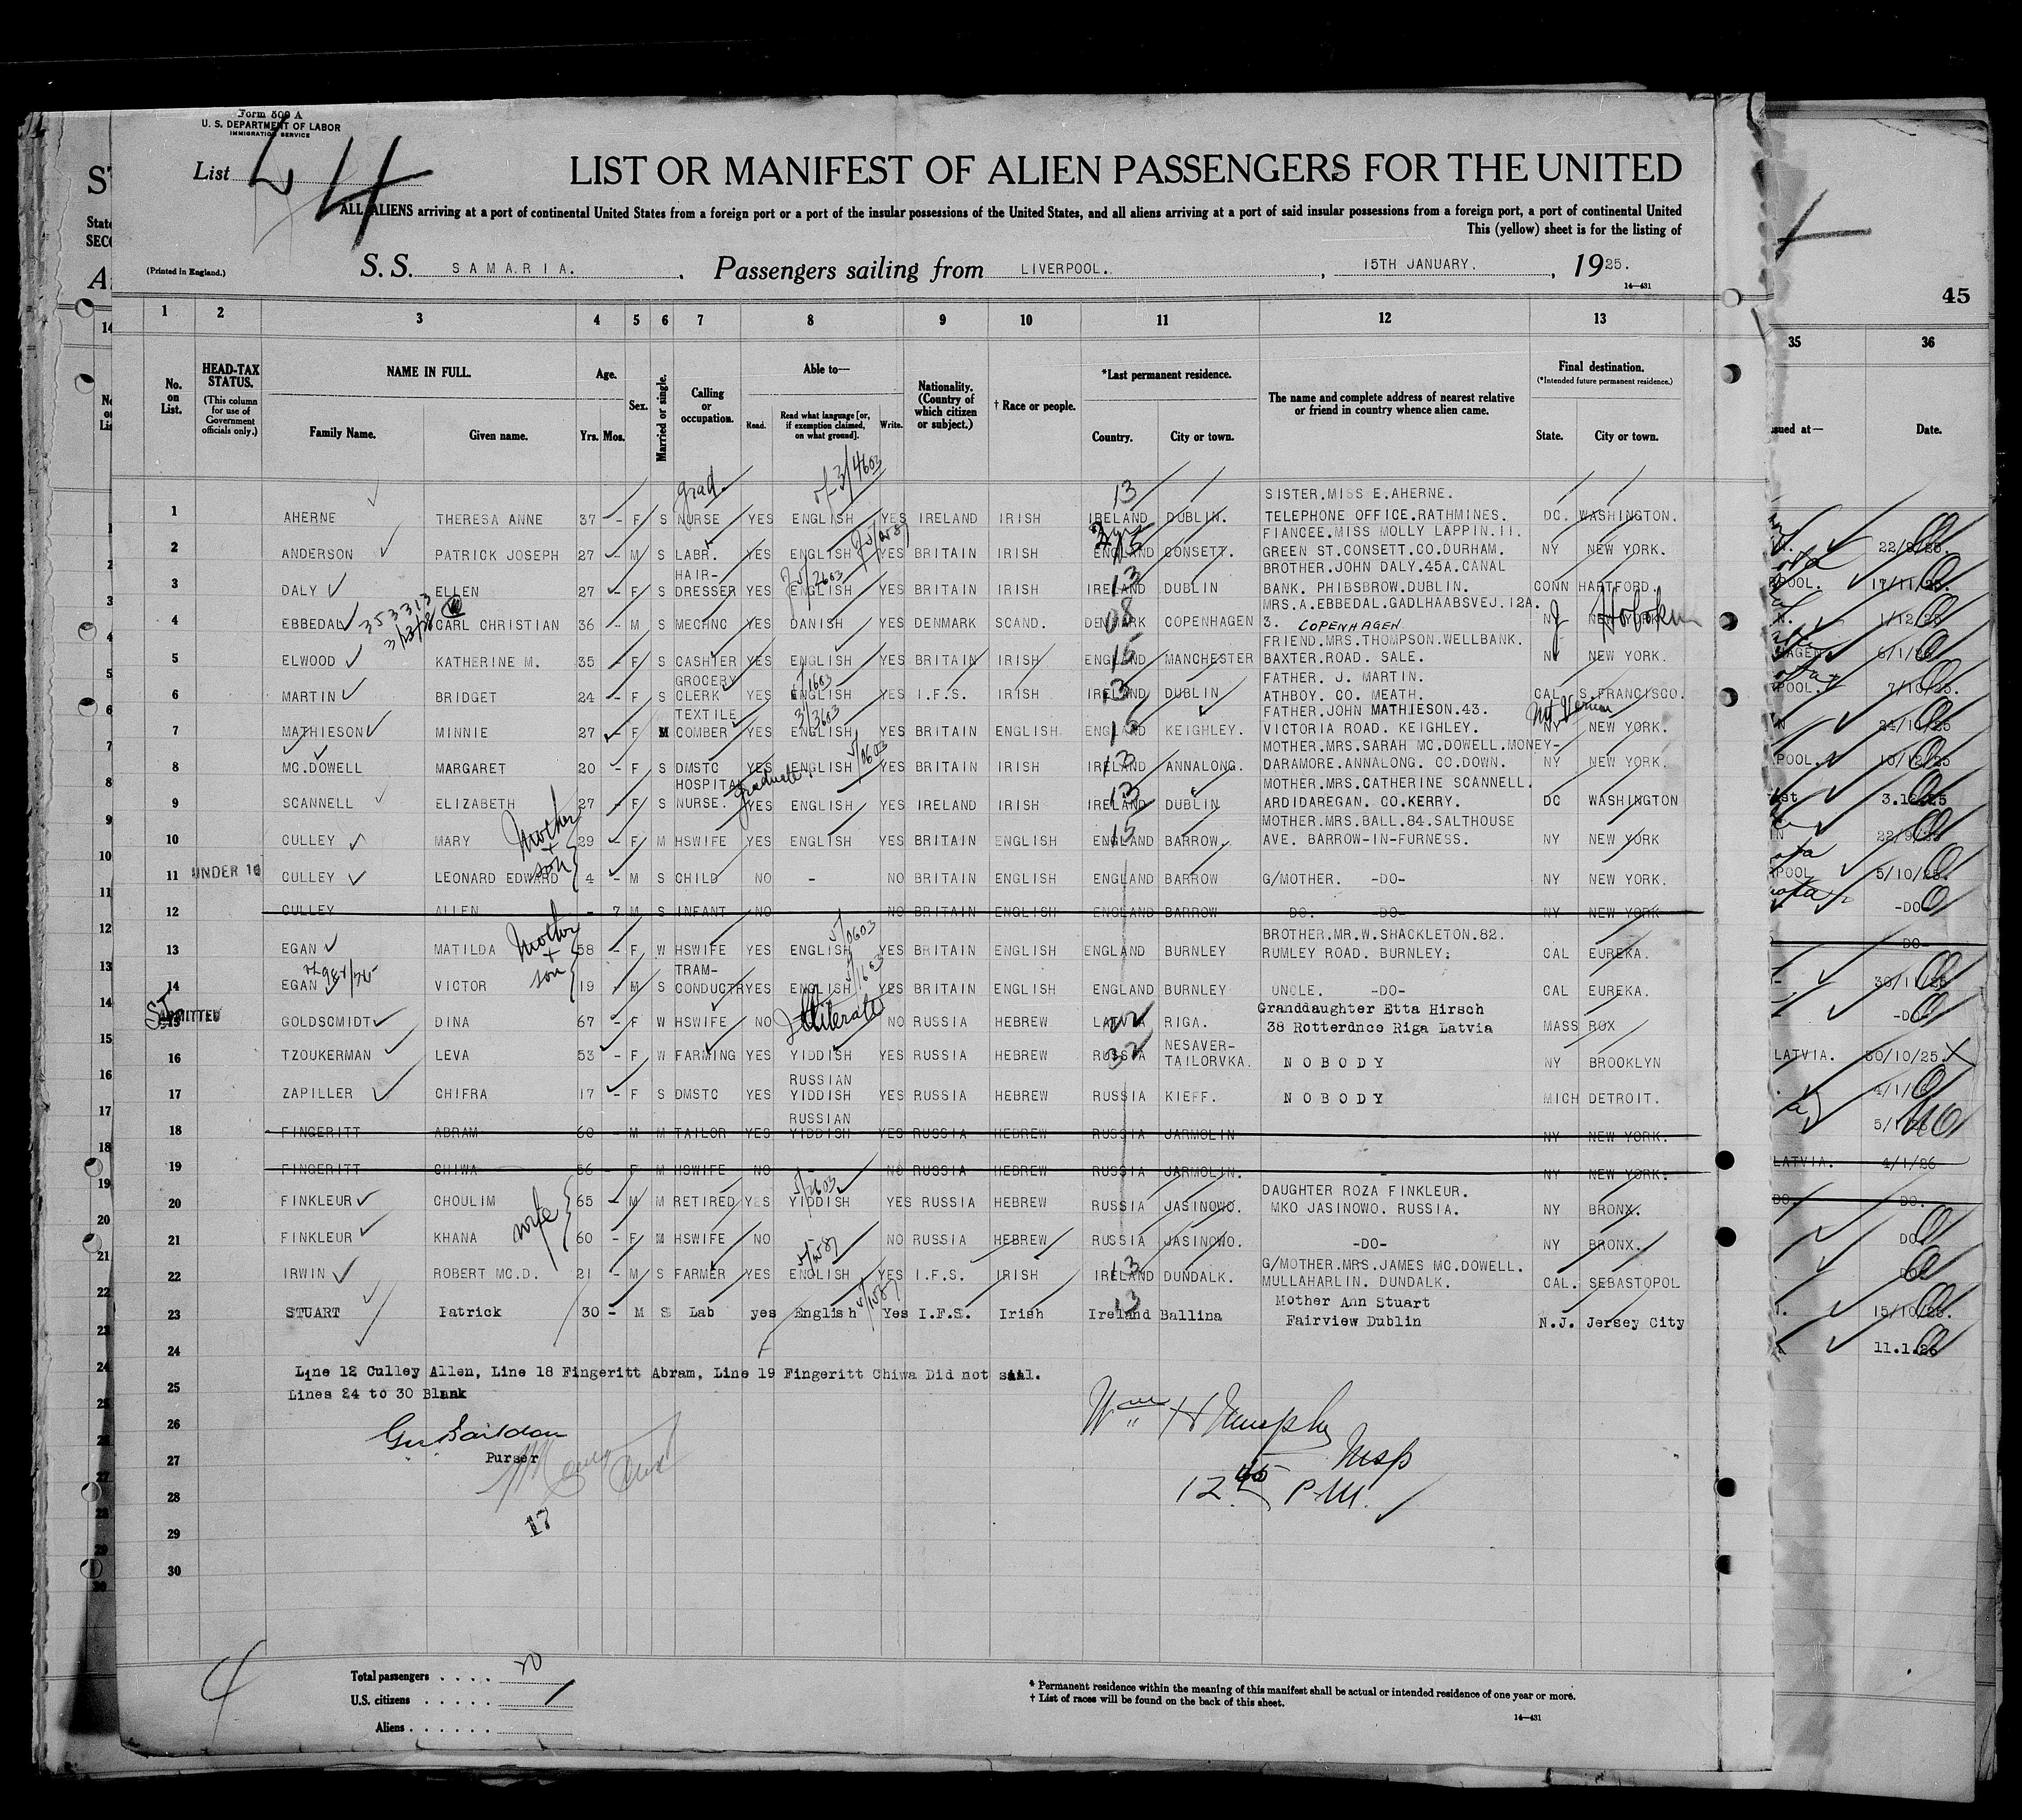 Form 500 A
U. S. DEPARTMENT OF LABOR
IMMIGRATION SERVICE
List 4
LIST OR MANIFEST OF ALIEN PASSENGERS FOR THE UNITED
ALL ALIENS arriving at a port of continental United States from a foreign port or a port of the insular possessions of the United States, and all aliens arriving at a port of said insular possessions from a foreign port, a port of continental United
This (yellow) sheet is for the listing of
(Printed in England.)
S. S. SAMARIA. , Passengers sailing from LIVERPOOL. , 15TH JANUARY. , 1925.
14—431
45
1 2 3 4 5 6 7 8 9 10 11 12 13 35 36
No. on List.
HEAD-TAX STATUS.
(This column for use of Government officials only.)
NAME IN FULL.
Family Name. Given name.
Age.
Yrs. Mos.
Sex.
Married or single.
Calling or occupation.
Able to—
Read. Read what language [or, if exemption claimed, on what ground]. Write.
Nationality. (Country of which citizen or subject.)
† Race or people.
*Last permanent residence.
Country. City or town.
The name and complete address of nearest relative or friend in country whence alien came.
Final destination.
(*Intended future permanent residence.)
State. City or town.
Date.
grad.
SISTER.MISS E.AHERNE.
1 AHERNE THERESA ANNE 37 - F S NURSE YES ENGLISH YES IRELAND IRISH IRELAND DUBLIN. TELEPHONE OFFICE.RATHMINES. DC. WASHINGTON.
FIANCEE.MISS MOLLY LAPPIN.11.
2 ANDERSON PATRICK JOSEPH 27 - M S LABR. YES ENGLISH YES BRITAIN IRISH ENGLAND CONSETT. GREEN ST.CONSETT.CO.DURHAM. NY NEW YORK.
HAIR- BROTHER.JOHN DALY.45A.CANAL
3 DALY ELLEN 27 - F S DRESSER YES ENGLISH YES BRITAIN IRISH IRELAND DUBLIN BANK. PHIBSBROW.DUBLIN. CONN HARTFORD.
353313 MRS.A.EBBEDAL.GADLHAABSVEJ.12A.
4 EBBEDAL CARL CHRISTIAN 36 - M S MECHNC YES DANISH YES DENMARK SCAND. DENMARK COPENHAGEN 3. COPENHAGEN NY NEW YORK Hoboken
FRIEND.MRS.THOMPSON.WELLBANK.
5 ELWOOD KATHERINE M. 35 - F S CASHIER YES ENGLISH YES BRITAIN IRISH ENGLAND MANCHESTER BAXTER.ROAD. SALE. NY NEW YORK.
GROCERY FATHER. J. MARTIN.
6 MARTIN BRIDGET 24 - F S CLERK YES ENGLISH YES I.F.S. IRISH IRELAND DUBLIN ATHBOY. CO. MEATH. CAL S.FRANCISCO.
TEXTILE FATHER.JOHN MATHIESON.43. Mt Vernon
7 MATHIESON MINNIE 27 - F M COMBER YES ENGLISH YES BRITAIN ENGLISH ENGLAND KEIGHLEY. VICTORIA ROAD. KEIGHLEY. NY NEW YORK.
MOTHER.MRS.SARAH MC.DOWELL.MONEY-
8 MC.DOWELL MARGARET 20 - F S DMSTC YES ENGLISH YES BRITAIN IRISH IRELAND ANNALONG. DARAMORE.ANNALONG. CO.DOWN. NY NEW YORK.
HOSPITAL graduate. MOTHER.MRS.CATHERINE SCANNELL.
9 SCANNELL ELIZABETH 27 - F S NURSE. YES ENGLISH YES IRELAND IRISH IRELAND DUBLIN ARDIDAREGAN. CO.KERRY. DC WASHINGTON
Mother + son MOTHER.MRS.BALL.84.SALTHOUSE
10 CULLEY MARY 29 - F M HSWIFE YES ENGLISH YES BRITAIN ENGLISH ENGLAND BARROW. AVE. BARROW-IN-FURNESS. NY NEW YORK
11 UNDER 16 CULLEY LEONARD EDWARD 4 - M S CHILD NO - NO BRITAIN ENGLISH ENGLAND BARROW G/MOTHER. -DO- NY NEW YORK.
12 CULLEY ALLEN - 7 M S INFANT NO NO BRITAIN ENGLISH ENGLAND BARROW DO. -DO- NY NEW YORK
Mother + son BROTHER.MR.W.SHACKLETON.82.
13 EGAN MATILDA 58 - F W HSWIFE YES ENGLISH YES BRITAIN ENGLISH ENGLAND BURNLEY RUMLEY ROAD. BURNLEY: CAL EUREKA.
TRAM-
14 EGAN VICTOR 19 - M S CONDUCTR YES ENGLISH YES BRITAIN ENGLISH ENGLAND BURNLEY UNCLE. -DO- CAL EUREKA.
ADMITTED Illiterate Granddaughter Etta Hirsch
15 GOLDSCMIDT DINA 67 - F W HSWIFE NO NO RUSSIA HEBREW LATVIA RIGA. 38 Rotterdnco Riga Latvia MASS ROX
NESAVER-
16 TZOUKERMAN LEVA 53 - F W FARMING YES YIDDISH YES RUSSIA HEBREW RUSSIA TAILORVKA. NOBODY NY BROOKLYN
RUSSIAN
17 ZAPILLER CHIFRA 17 - F S DMSTC YES YIDDISH YES RUSSIA HEBREW RUSSIA KIEFF. NOBODY MICH DETROIT.
RUSSIAN
18 FINGERITT ABRAM 60 - M M TAILOR YES YIDDISH YES RUSSIA HEBREW RUSSIA JARMOLIN - NY NEW YORK.
19 FINGERITT CHIWA 56 - F M HSWIFE NO - NO RUSSIA HEBREW RUSSIA JARMOLIN. - NY NEW YORK.
wife DAUGHTER ROZA FINKLEUR.
20 FINKLEUR CHOULIM 65 - M M RETIRED YES YIDDISH YES RUSSIA HEBREW RUSSIA JASINOWO. MKO JASINOWO. RUSSIA. NY BRONX.
21 FINKLEUR KHANA 60 - F M HSWIFE NO NO RUSSIA HEBREW RUSSIA JASINOWO. -DO- NY BRONX.
G/MOTHER.MRS.JAMES MC.DOWELL.
22 IRWIN ROBERT MC.D. 21 - M S FARMER YES ENGLISH YES I.F.S. IRISH IRELAND DUNDALK. MULLAHARLIN. DUNDALK. CAL. SEBASTOPOL
Mother Ann Stuart
23 STUART Patrick 30 - M S Lab yes English Yes I.F.S. Irish Ireland Ballina Fairview Dublin N.J. Jersey City
24
Line 12 Culley Allen, Line 18 Fingeritt Abram, Line 19 Fingeritt Chiwa Did not sail.
25 Lines 24 to 30 Blank
26
27 Purser
Insp
28 12 45 P.M.
17
29
30
4
Total passengers . . . .
U.S. citizens . . . . .
Aliens . . . . . .
* Permanent residence within the meaning of this manifest shall be actual or intended residence of one year or more.
† List of races will be found on the back of this sheet.
14—431